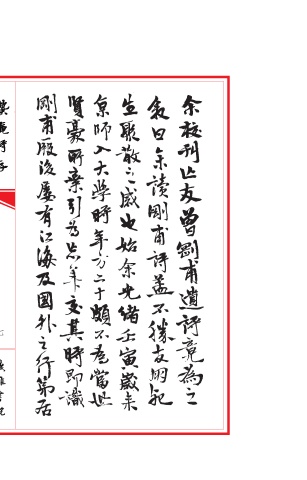 余校刊亡友曾剛甫遺詩竟為之
敘曰余讀剛甫詩蓋不勝友朋死
生聚散之感也始余光緒壬寅歲來
京師入大學時年方二十頗不為當世
賢豪所棄引為忘年交其時即識
剛甫厥後屢有江海及國外之行第居